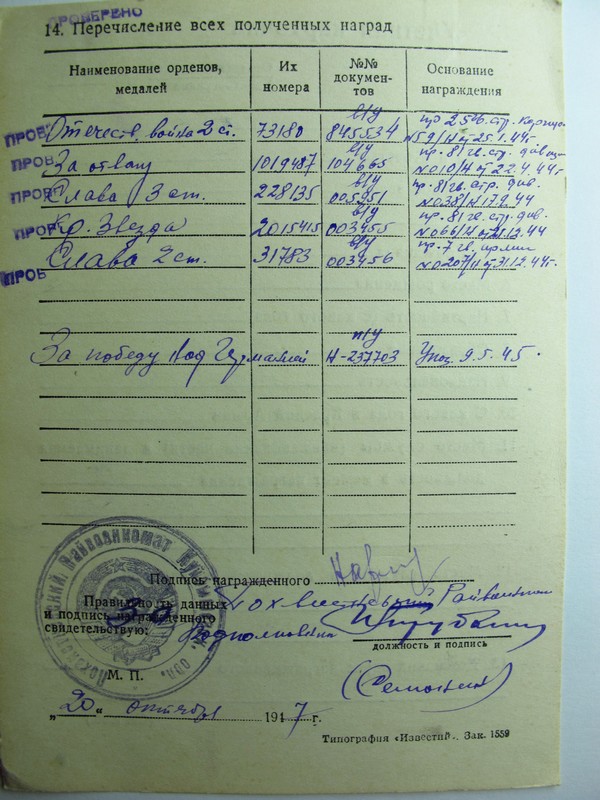 ПРОВЕРЕНО
14. Перечисление всех полученных наград
Наименование орденов, медалей
Их номера
№№ документов
Основание награждения
ПРОВ Отечеств. война 2 ст. 73180 в/у 845534 пр 25 гв. стр. №59/н 25.1.44г
ПРОВ За отвагу 1019487 в/у 104665 пр. 81 гв. стр. див. №010/н 22.4.44г.
ПРОВ Слава 3 ст. 228135 в/у 005951 пр. 81 гв. стр. див. №038/н
ПРОВ Кр. Звезда 2015415 в/у 003455 пр. 81 гв. стр. див. №066/н 12.44
ПРОВ Слава 2 ст. 31783 в/у 003456 пр. 7 гв. армии №0207/н 31.12.44г.
За победу над Германией п/у Н-237703 Указ 9.5.45.
Подпись награжденного
Правильность данных
и подпись награжденного
свидетельствую:
Подполковник
должность и подпись
М. П.
(Семонкин)
„20“ октября 1947г.
Типография «Известий». Зак. 1559